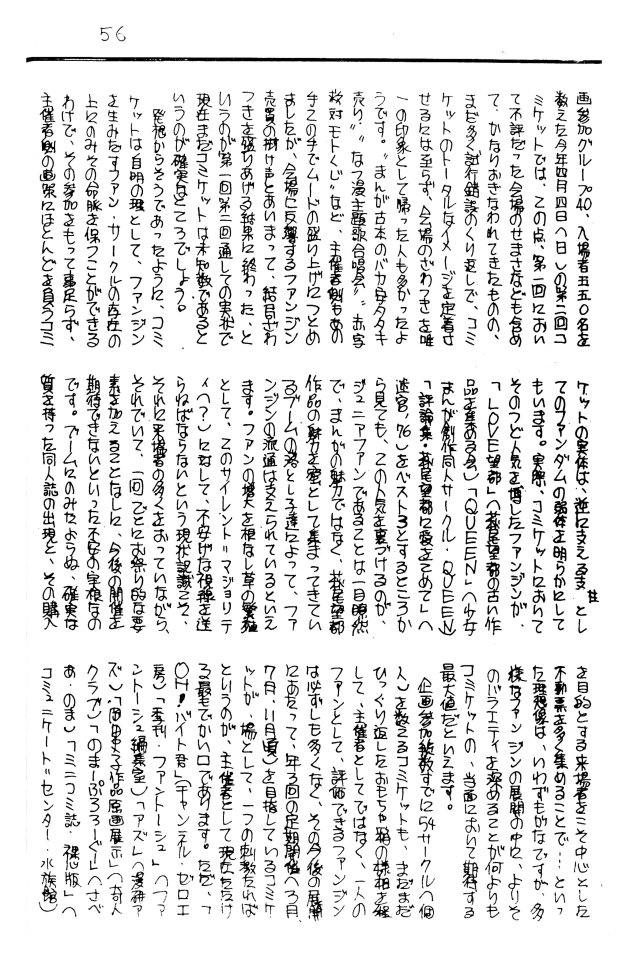 56
画参加グループ40、入場者五五〇名を
数えた今年四月四日(日)の第二回コ
ミケットでは、この点、第一回におい
て不評だった会場のせまさなども含め
て、かなりおぎなわれてきたものの、
まだ多く試行錯誤のくり返しで、コミ
ケットのトータルなイメージを定着さ
せるには至らず、会場のざわつきを唯
一の印象として帰った人も多かったよ
うです。“まんが古本のバカ安タタキ
売り”“なつ漫主題歌合唱会”“赤字
救対モトくじ”など、主催者側もあの
手この手でムードの盛り上げにつとめ
ましたが、会場に反響するファンジン
売買の掛け声とあいまって、結局ざわ
つきを盛りあげる結果に終わった、と
いうのが第一回第二回通しての実状で
現在まだコミケットは未知数であると
いうのが確実なところでしょう。
発想からそうであったように、コミ
ケットは自明の理として、ファンジン
を生みだすファン・サークルの存在の
上にのみその命脈を保つことができる
わけで、その参加をもって事足らず、
主催者側の画策にほとんどを負うコミ
ケットの実体は、逆に支える支柱とし
てのファンダムの弱体を明らかにして
もいます。実際、コミケットにおいて
そのつど人気を博したファンジンが、
「LOVE望都」(萩尾望都の古い作
品を集める会)「QUEEN」(少女
まんが創作同人サークル・QUEEN)
「評論集・萩尾望都に愛をこめて」(
迷宮'76)をベスト3とするところか
ら見ても、この人気を裏づけるのが、
ジュニアファンであることは一目瞭然
で、まんがの魅力ではなく、萩尾望都
作品の魅力を窓として集まってきてい
るブームの落とし子達によって、ファ
ンジンの流通は支えられているといえ
ます。ファンの増大を根なし草の繁殖
として、このサイレント=マジョリテ
ィ(?)に対して、不安げな視線を送
らねばならないという現状認識こそ、
それに来場者の多くをおっていながら、
それでいて、一回ごとにお祭り的な要
素を加えることなしに、今後の開催を
期待できないといった不安の実相なの
です。ブームにのみたよらぬ、確実な
質を持った同人誌の出現と、その購入
を目的とする来場者をこそ中心とした
不動票を多く集めることで…といっ
た理想像は、いわずもがなですが、多
様なファンジンの展開の中に、よりそ
のバラエティを深めることが何よりも
コミケットの、当面において期待する
最大値だといえます。
企画参加総数すでに54サークル(個
人)を数えるコミケットも、まだまだ
ひっくり返したおもちゃ箱の様相を経
して、主催者としてではなく、一人の
ファンとして、評価できるファンジン
は必ずしも多くなく、その今後の展開
にあたって、年3回の定期開催(3月、
7月、11月頃)を目指しているコミケ
ットが“場”として、一つの刺激たれば
というのが、主催者として現在たたけ
る最もでかい口であります。ただ、「
OH!バイト君」(チャンネル・ゼロエ
房)「季刊・ファントーシュ」(ファ
ントーシュ編集室)「アズ」(漫研ア
ズ)「岡田史子作品原画展示」(奇人
クラブ)「のまーぷろろーぐ!」(さべ
あ・のま)「ミニコミ誌 裸心版」(
コミュニケート=センター・水族館)